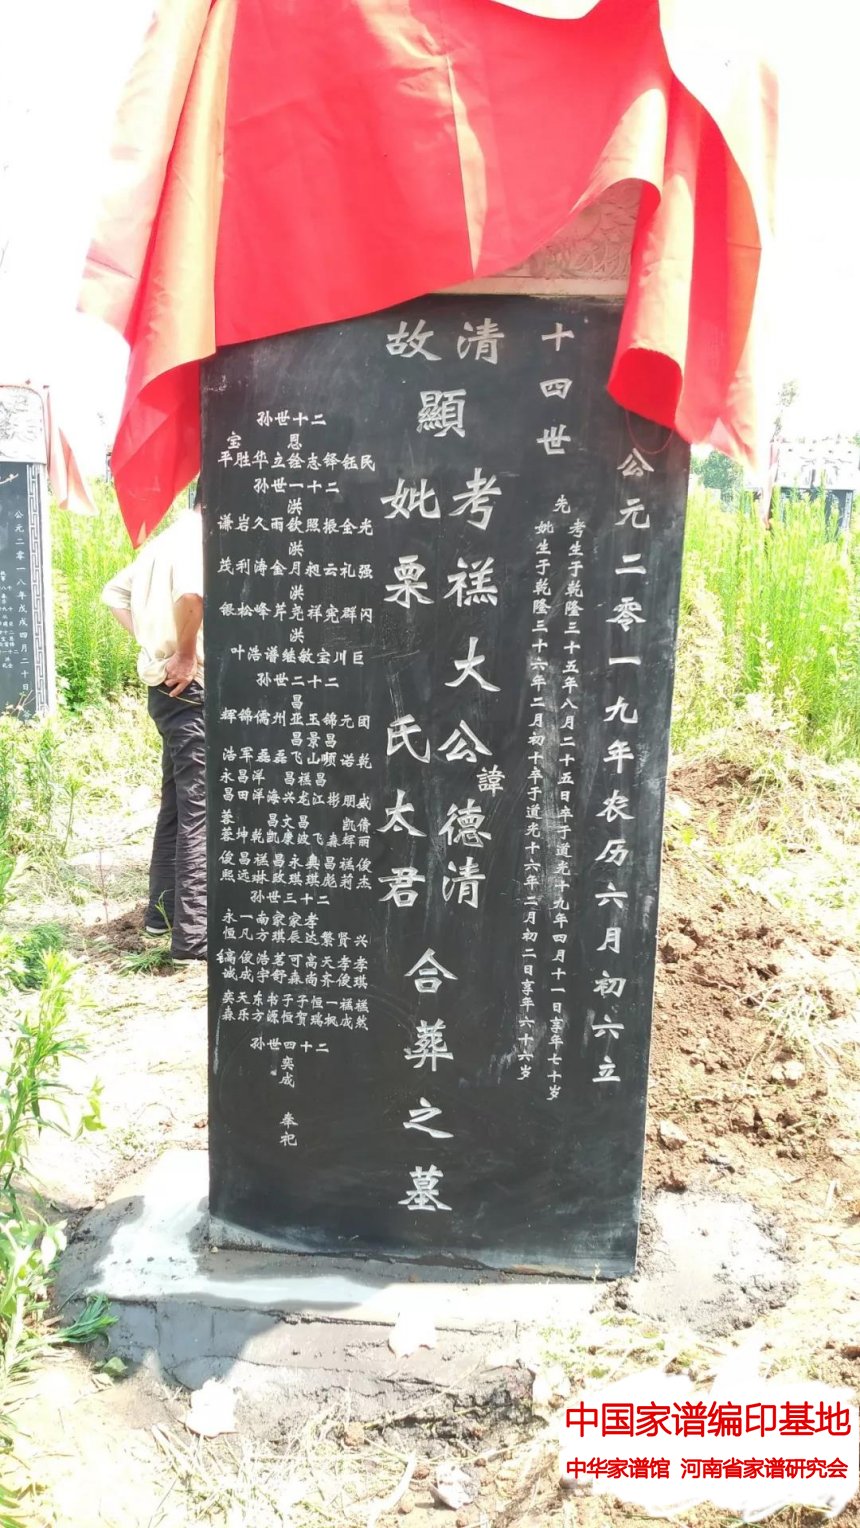 公元二零一九年农历六月初六立
十四世
先
考生于乾隆三十五年八月二十五日卒于道光十九年四月十一日享年七十岁
妣生于乾隆三十六年二月初十卒于道光十六年二月初二日享年六十六岁
清 考禚大公諱德清
故 妣栗氏太君
顯
合葬之墓
二十世孙
恩 宝
民钰铎志铨立华胜平
二十一世孙
洪
光金振照钦雨久岩谦
洪
强礼云昶月金涛利茂
洪
闪群宪祥尧芹峰松银
洪
巨川宝敏继谱浩叶
二十二世孙
昌
团元锦玉亚州儒锦辉
昌景昌
乾诺顺山飞磊磊军浩
昌禚昌 洋昌永
威朋彬江龙兴海洋田昌
倩凯 昌文昌 蓉
丽辉森飞波康凯乾坤蓉
俊禚昌奥永昌禚昌俊
杰莉彪琪琪政琳远熙
二十三世孙
孝家家南一永
兴贤繁达辰琪方凡恒
孝孝天高可茗浩俊
琪俊齐尚森舒宇成诚
禚禚一恒子子书东天奕
然成枫瑞贺恒源方乐森
二十四世孙
奕成
奉祀
公元二零一八年戊戌四月二十日
中国家谱编印基地
中华家谱馆 河南省家谱研究会